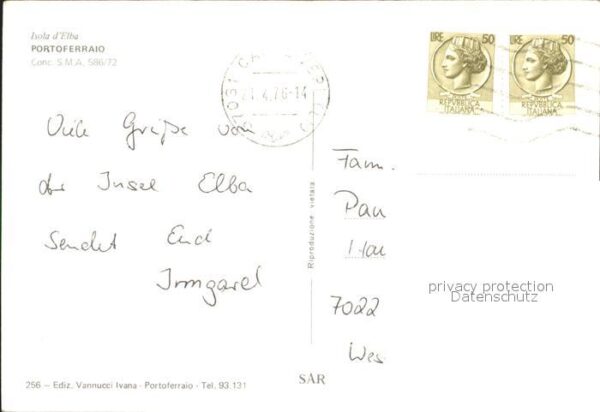 Isola d'Elba
PORTOFERRAIO
Conc. S.M.A. 586/72
LIRE 50
REPVBBLICA
ITALIANA
LIRE 50
REPVBBLICA
ITALIANA
4.76-14
Viele Grüße von
der Insel Elba
Sendet Euch
Irmgard
Riproduzione vietata
Fam.
Pau
Hau
7022
privacy protection
Datenschutz
256 – Ediz. Vannucci Ivana - Portoferraio - Tel. 93.131
SAR